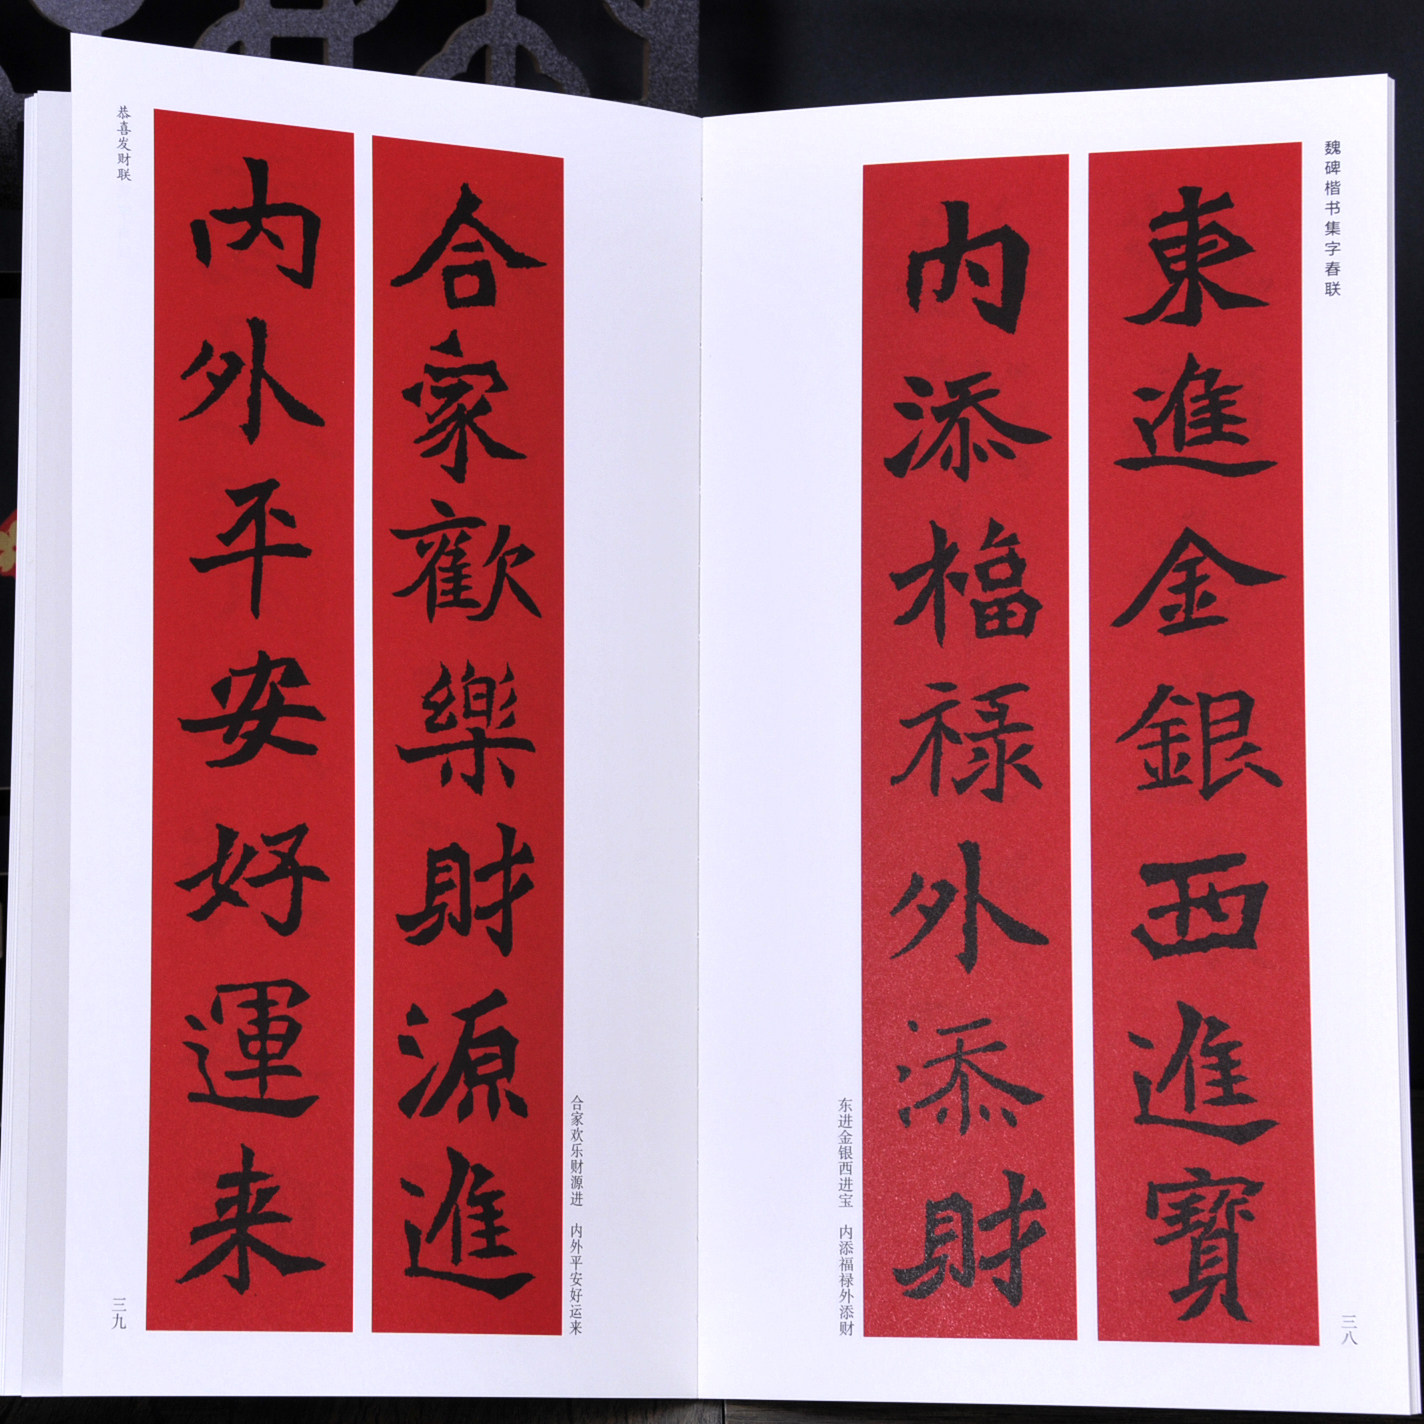 魏碑楷书集字春联
東進金銀西進寶
内添福禄外添财
东进金银西进宝 内添福禄外添财
三八
合家歡樂財源進
内外平安好運来
合家欢乐财源进 内外平安好运来
恭喜发财联
三九